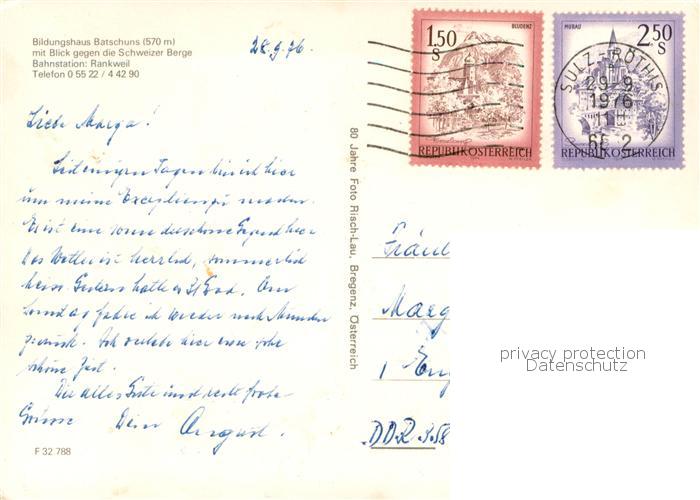 Bildungshaus Batschuns (570 m)
mit Blick gegen die Schweizer Berge
Bahnstation: Rankweil
Telefon 0 55 22 / 4 42 90
28.9.76.
BLUDENZ
1.50
S
REPUBLIK ÖSTERREICH
MURAU
2.50
S
REPUBLIK ÖSTERREICH
SULZ-RÖTHIS
29-9
1976
11
2
Liebe Marga!
Seit einigen Tagen bin ich hier
um meine Exerzitien zu machen.
Es ist eine wunderschöne Gegend hier
Das Wetter ist herrlich, sommerlich
heiss. Gestern hatten Grad. Am
Sonntag fahre ich wieder nach München
zurück. Ich verlebe hier eine sehr
schöne Zeit.
Dir alles Gute und recht frohe
Grüsse Dein August.
F 32 788
80 Jahre Foto Risch-Lau, Bregenz, Österreich
Fräul
Marg
DDR 9.58
privacy protection
Datenschutz